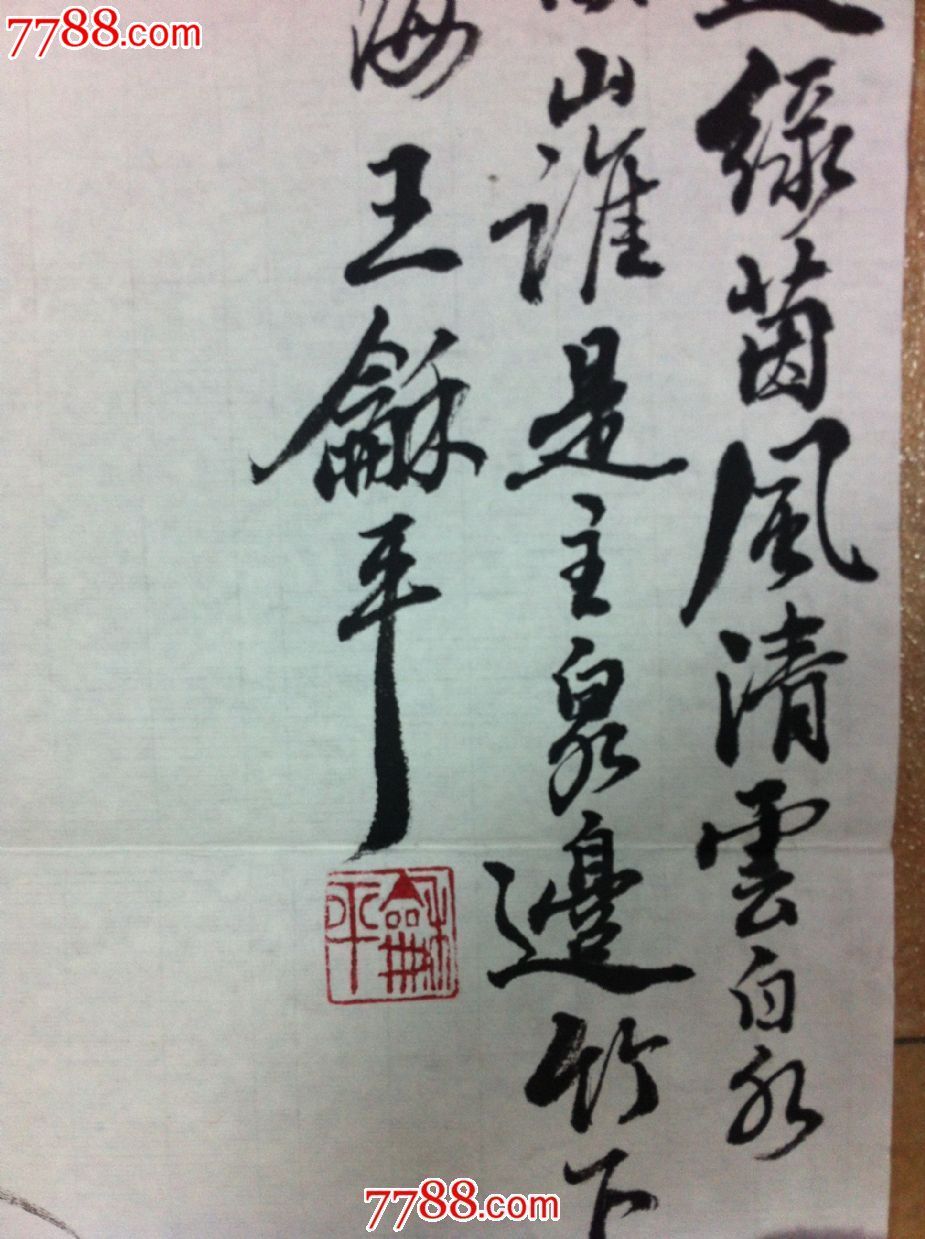 7788.com
綠茵風清雲白水
山誰是主泉邊竹下
海王龢平
龢平
7788.com